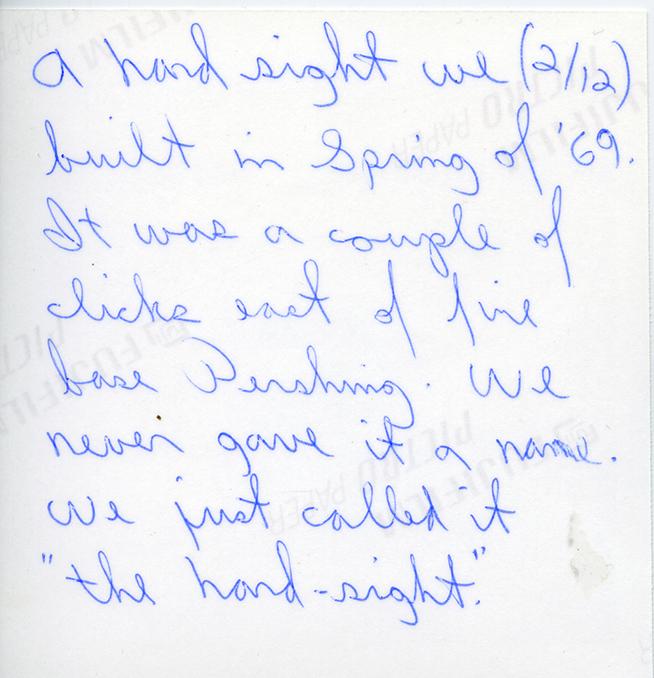 A hard sight we (2/12)
built in Spring of '69.
It was a couple of
clicks east of fire
base Pershing. We
never gave it a name.
We just called it
"the hard-sight."